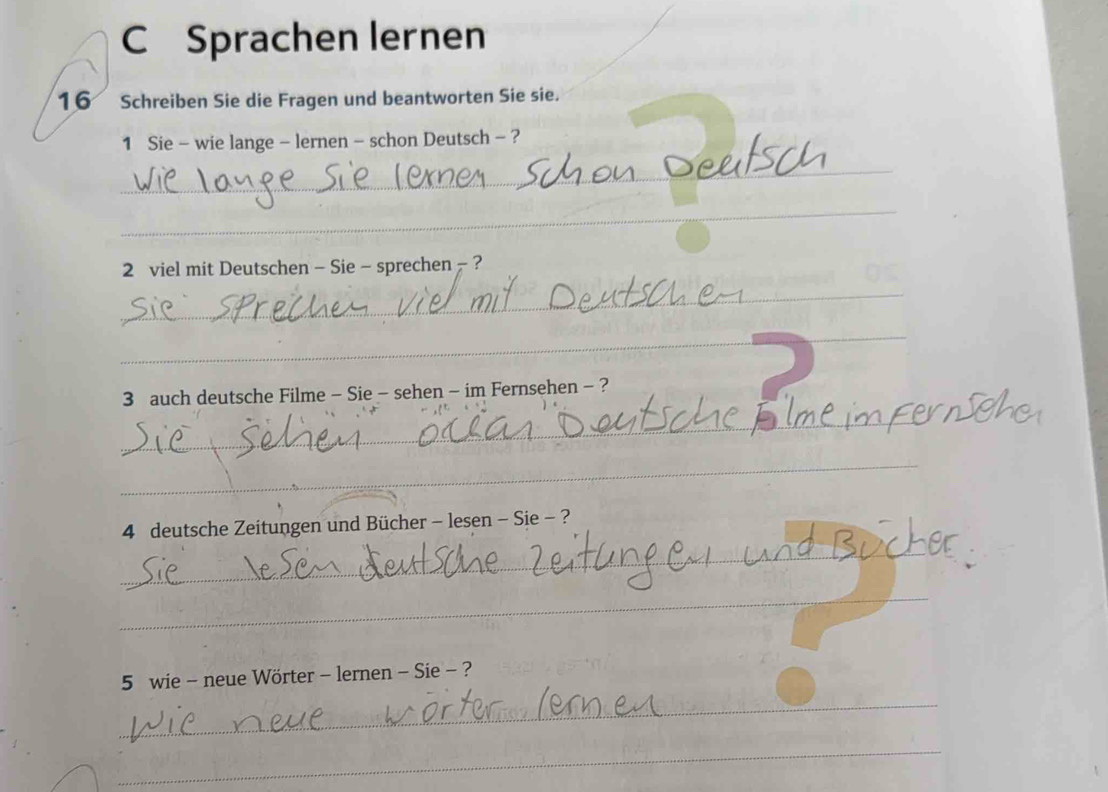 C Sprachen lernen
16 Schreiben Sie die Fragen und beantworten Sie sie.
1 Sie – wie lange – lernen – schon Deutsch – ?
wie lange Sie lernen schon Deutsch
2 viel mit Deutschen – Sie – sprechen – ?
Sie sprechen viel mit Deutschen
3 auch deutsche Filme – Sie – sehen – im Fernsehen – ?
Sie sehen Deutsche Filme im Fernsehen
4 deutsche Zeitungen und Bücher – lesen – Sie – ?
Sie lesen deutsche Zeitungen und Bücher.
5 wie – neue Wörter – lernen – Sie – ?
Wie neue wörter lernen